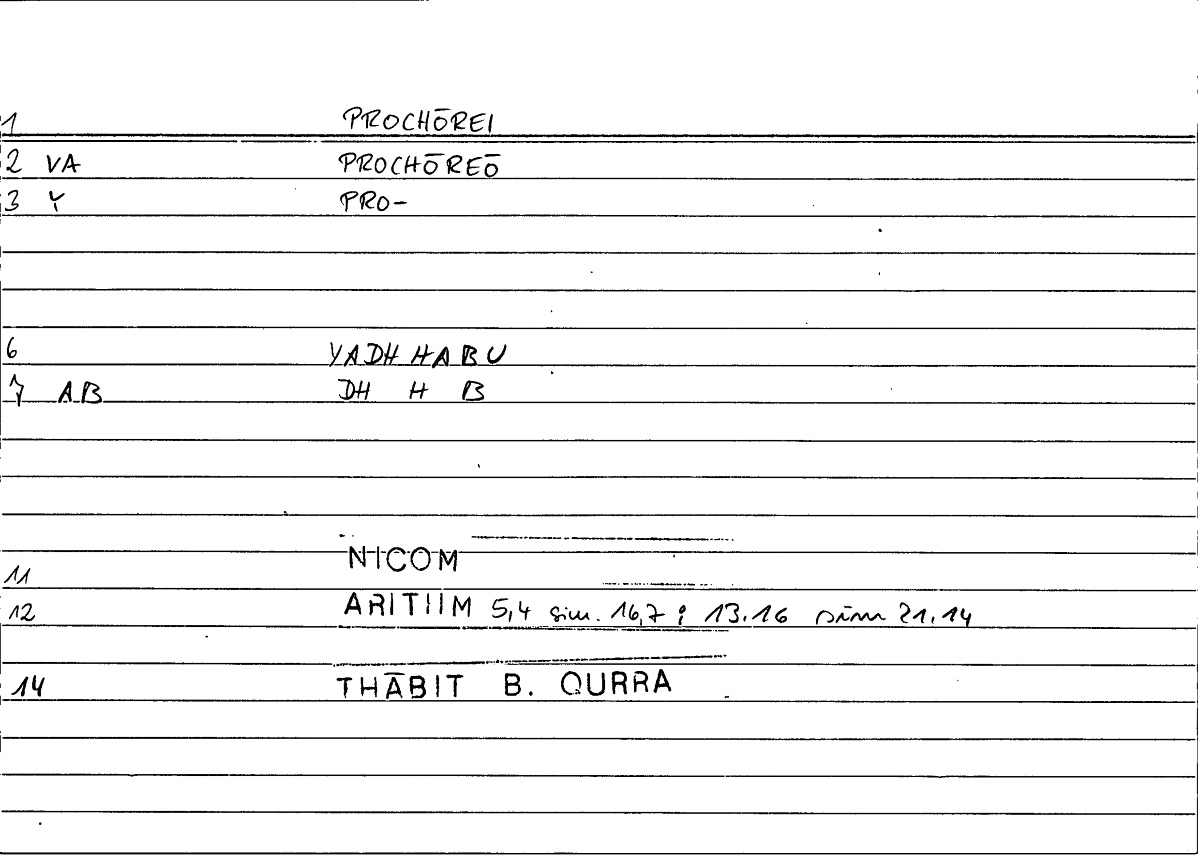 1 PROCHŌREI
2 VA PROCHŌREŌ
3 Y PRO-
6 YADHHABU
7 AB DH H B
11 NICOM
12 ARITIIM 5,4 sim. 16,7 ; 13.16 sim 21.14
14 THĀBIT B. QURRA